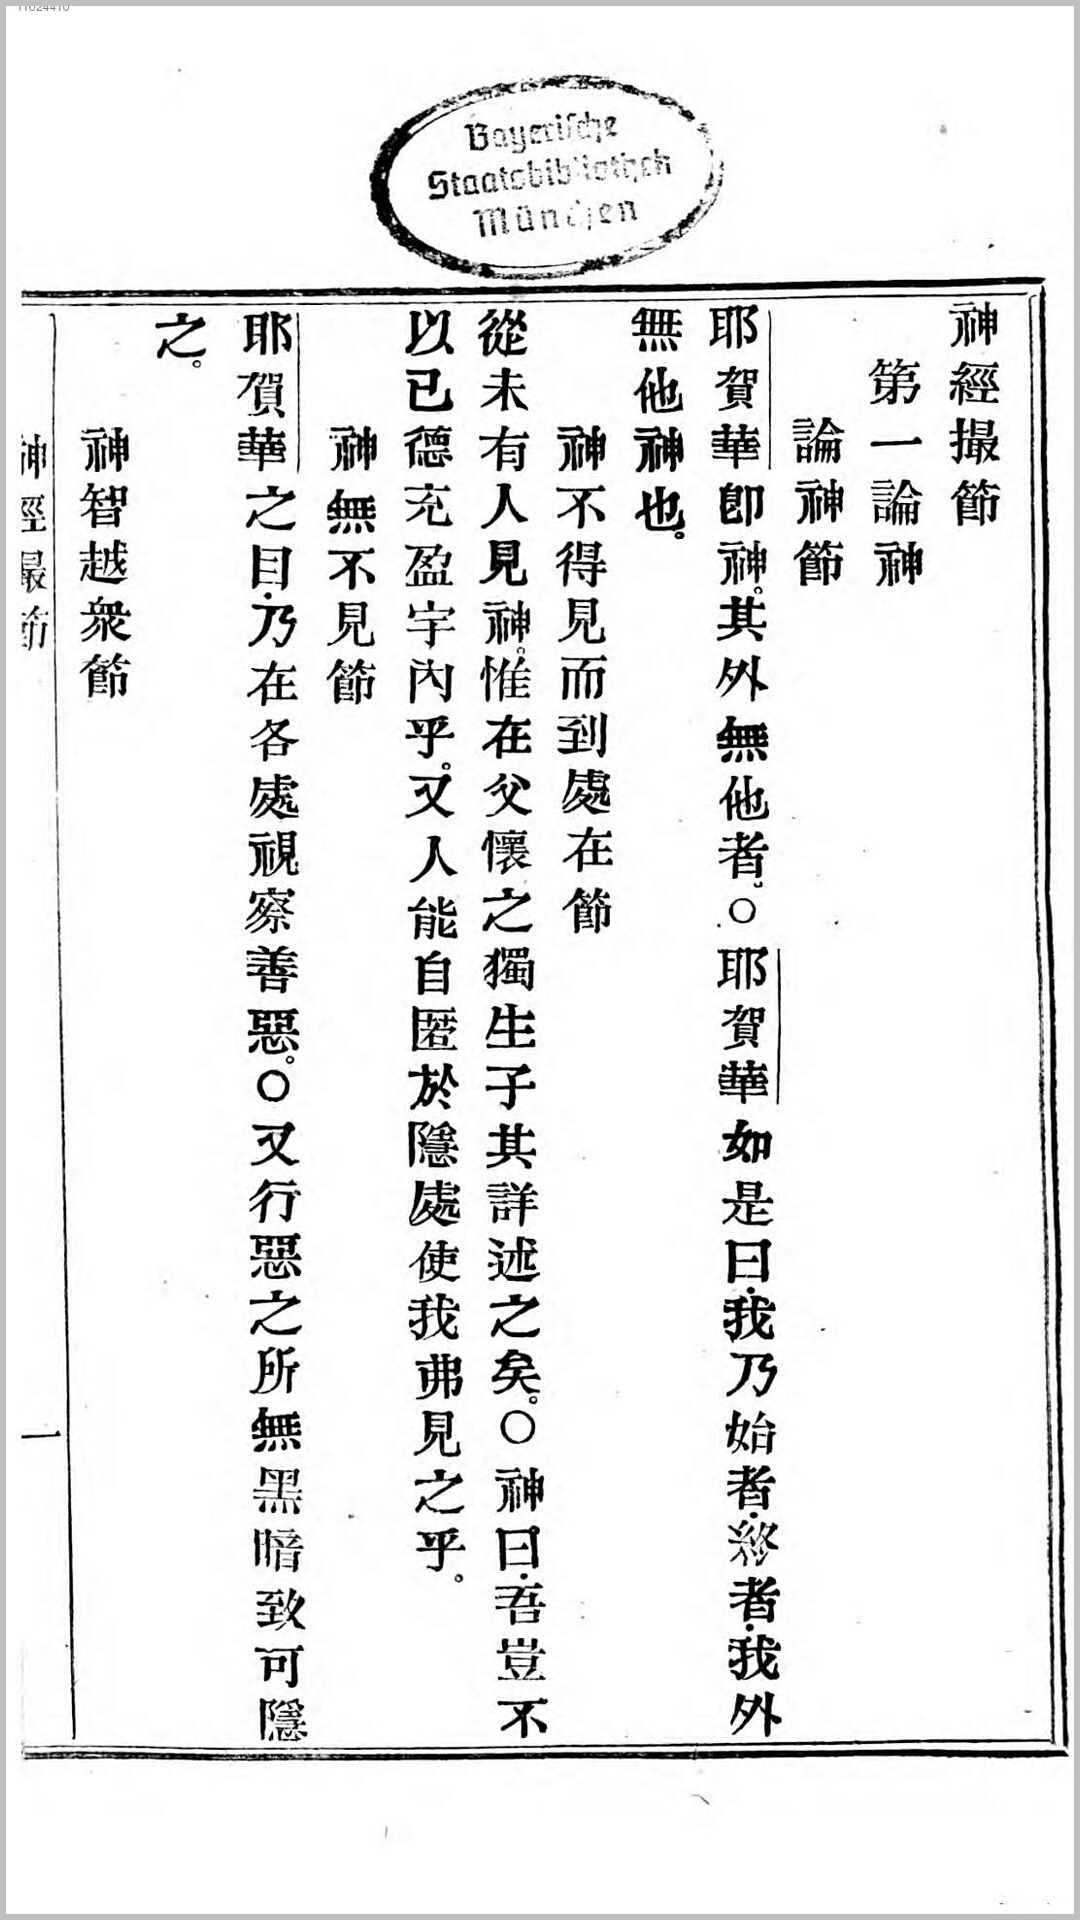 Bayerische
Staatsbibliothek
München
神經撮節
第一論神
論神節
耶賀華卽神。其外無他者。○耶賀華如是曰・我乃始者・終者・我外
無他神也。
神不得見而到處在節
從未有人見神。惟在父懷之獨生子其詳述之矣。○神曰・吾豈不
以已德充盈宇內乎。又人能自匿於隱處使我弗見之乎。
神無不見節
耶賀華之目・乃在各處視察善惡。○又行惡之所無黑暗致可隱
之。
神智越衆節
神經最節
一